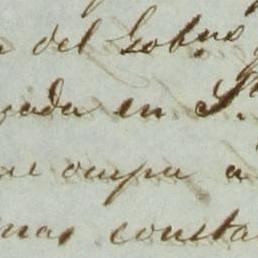 a del Gobno
zada en S.
que ocupa a
mas consta